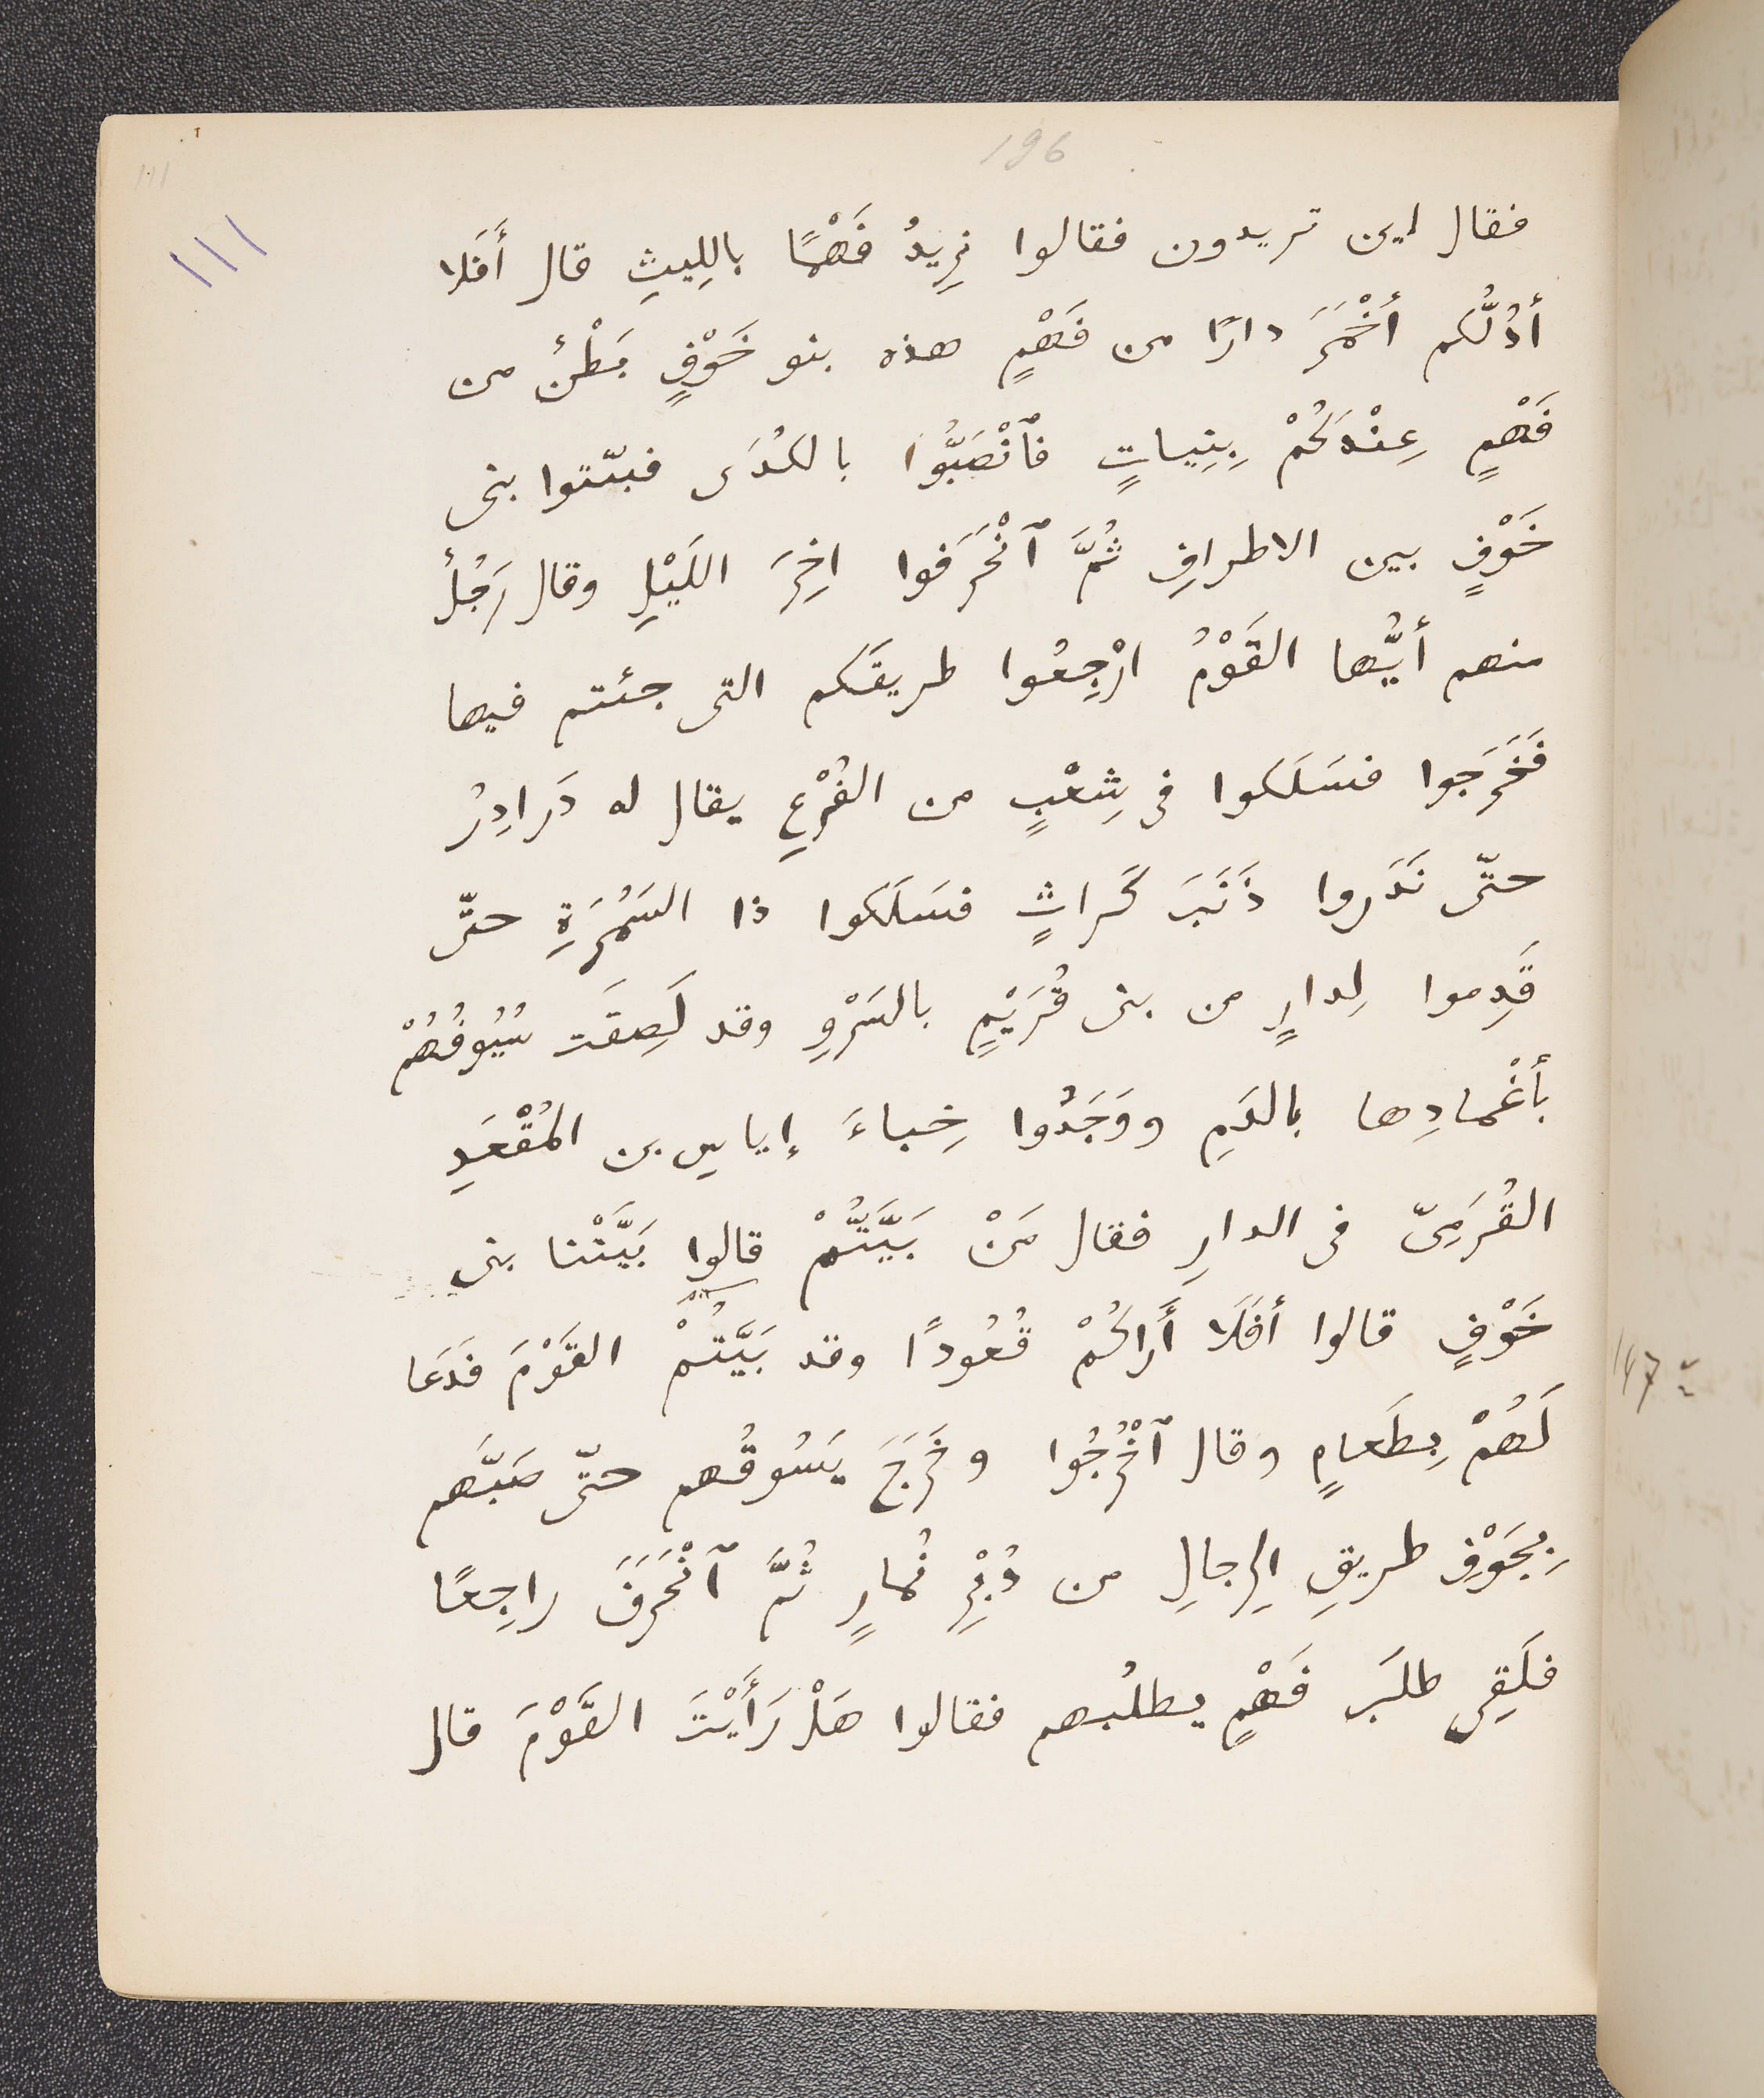 196
111
١١١
فقال اين تريدون فقالوا نرِيدُ فَهْمًا بالِليثِ قال أَفَلا
أدُلُّكم أخْمَرَ دارًا من فَهْمٍ هذه بنو خَوْفٍ بَطْنٌ من
فَهْمٍ عِنْدَكُمْ بِنِيباتٍ فٱنْصَبُّوا بالكُدَى فبيّتوا بنى
خَوْفٍ بين الاطرافِ ثُمَّ ٱنْحَرَفوا اخِرَ اللَيْلِ وقال رَجُلٌ
منهم أيُّها القَوْمُ ارْجِعُوا طريقَكم التى جئتم فيها
فَخَرَجوا فسَلَكوا فى شِعْبٍ من الفُرْعِ يقال له دَرادِرُ
حتّى نَدَروا ذَنَبَ كَراثٍ فسَلَكوا ذا السَمُرَةِ حتّى
قَدِموا لِدارٍ من بنى قُرَيْمٍ بالسَرْوِ وقد لَصِقَت سُيُوفُهُمْ
بأغْمادِها بالدَمِ ووَجَدُوا خِباءَ إياسِ بن المُقْعَدِ
القُرَمِىّ فى الدارِ فقال مَنْ بَيَّتُّمْ قالوا بَيَّتْنا بنى
خَوْفٍ قالوا أفَلَا أَراكُمْ قُعُودًا وقد بَيَّتُمْ القَوْمَ فدَعَا
لَهُمْ بِطَعامٍ وقال ٱخْرُجُوا وخَرَجَ يَسُوقُهم حتّى صَبَّهم
بِجَوْفِ طريقِ الرِجالِ من دُبُرِ نُمارٍ ثُمَّ ٱنْحَرَفَ راجِعًا
فلَقِى طلَبَ فَهْمٍ يطلُبهم فقالوا هَلْ رَأَيْتَ القَوْمَ قال